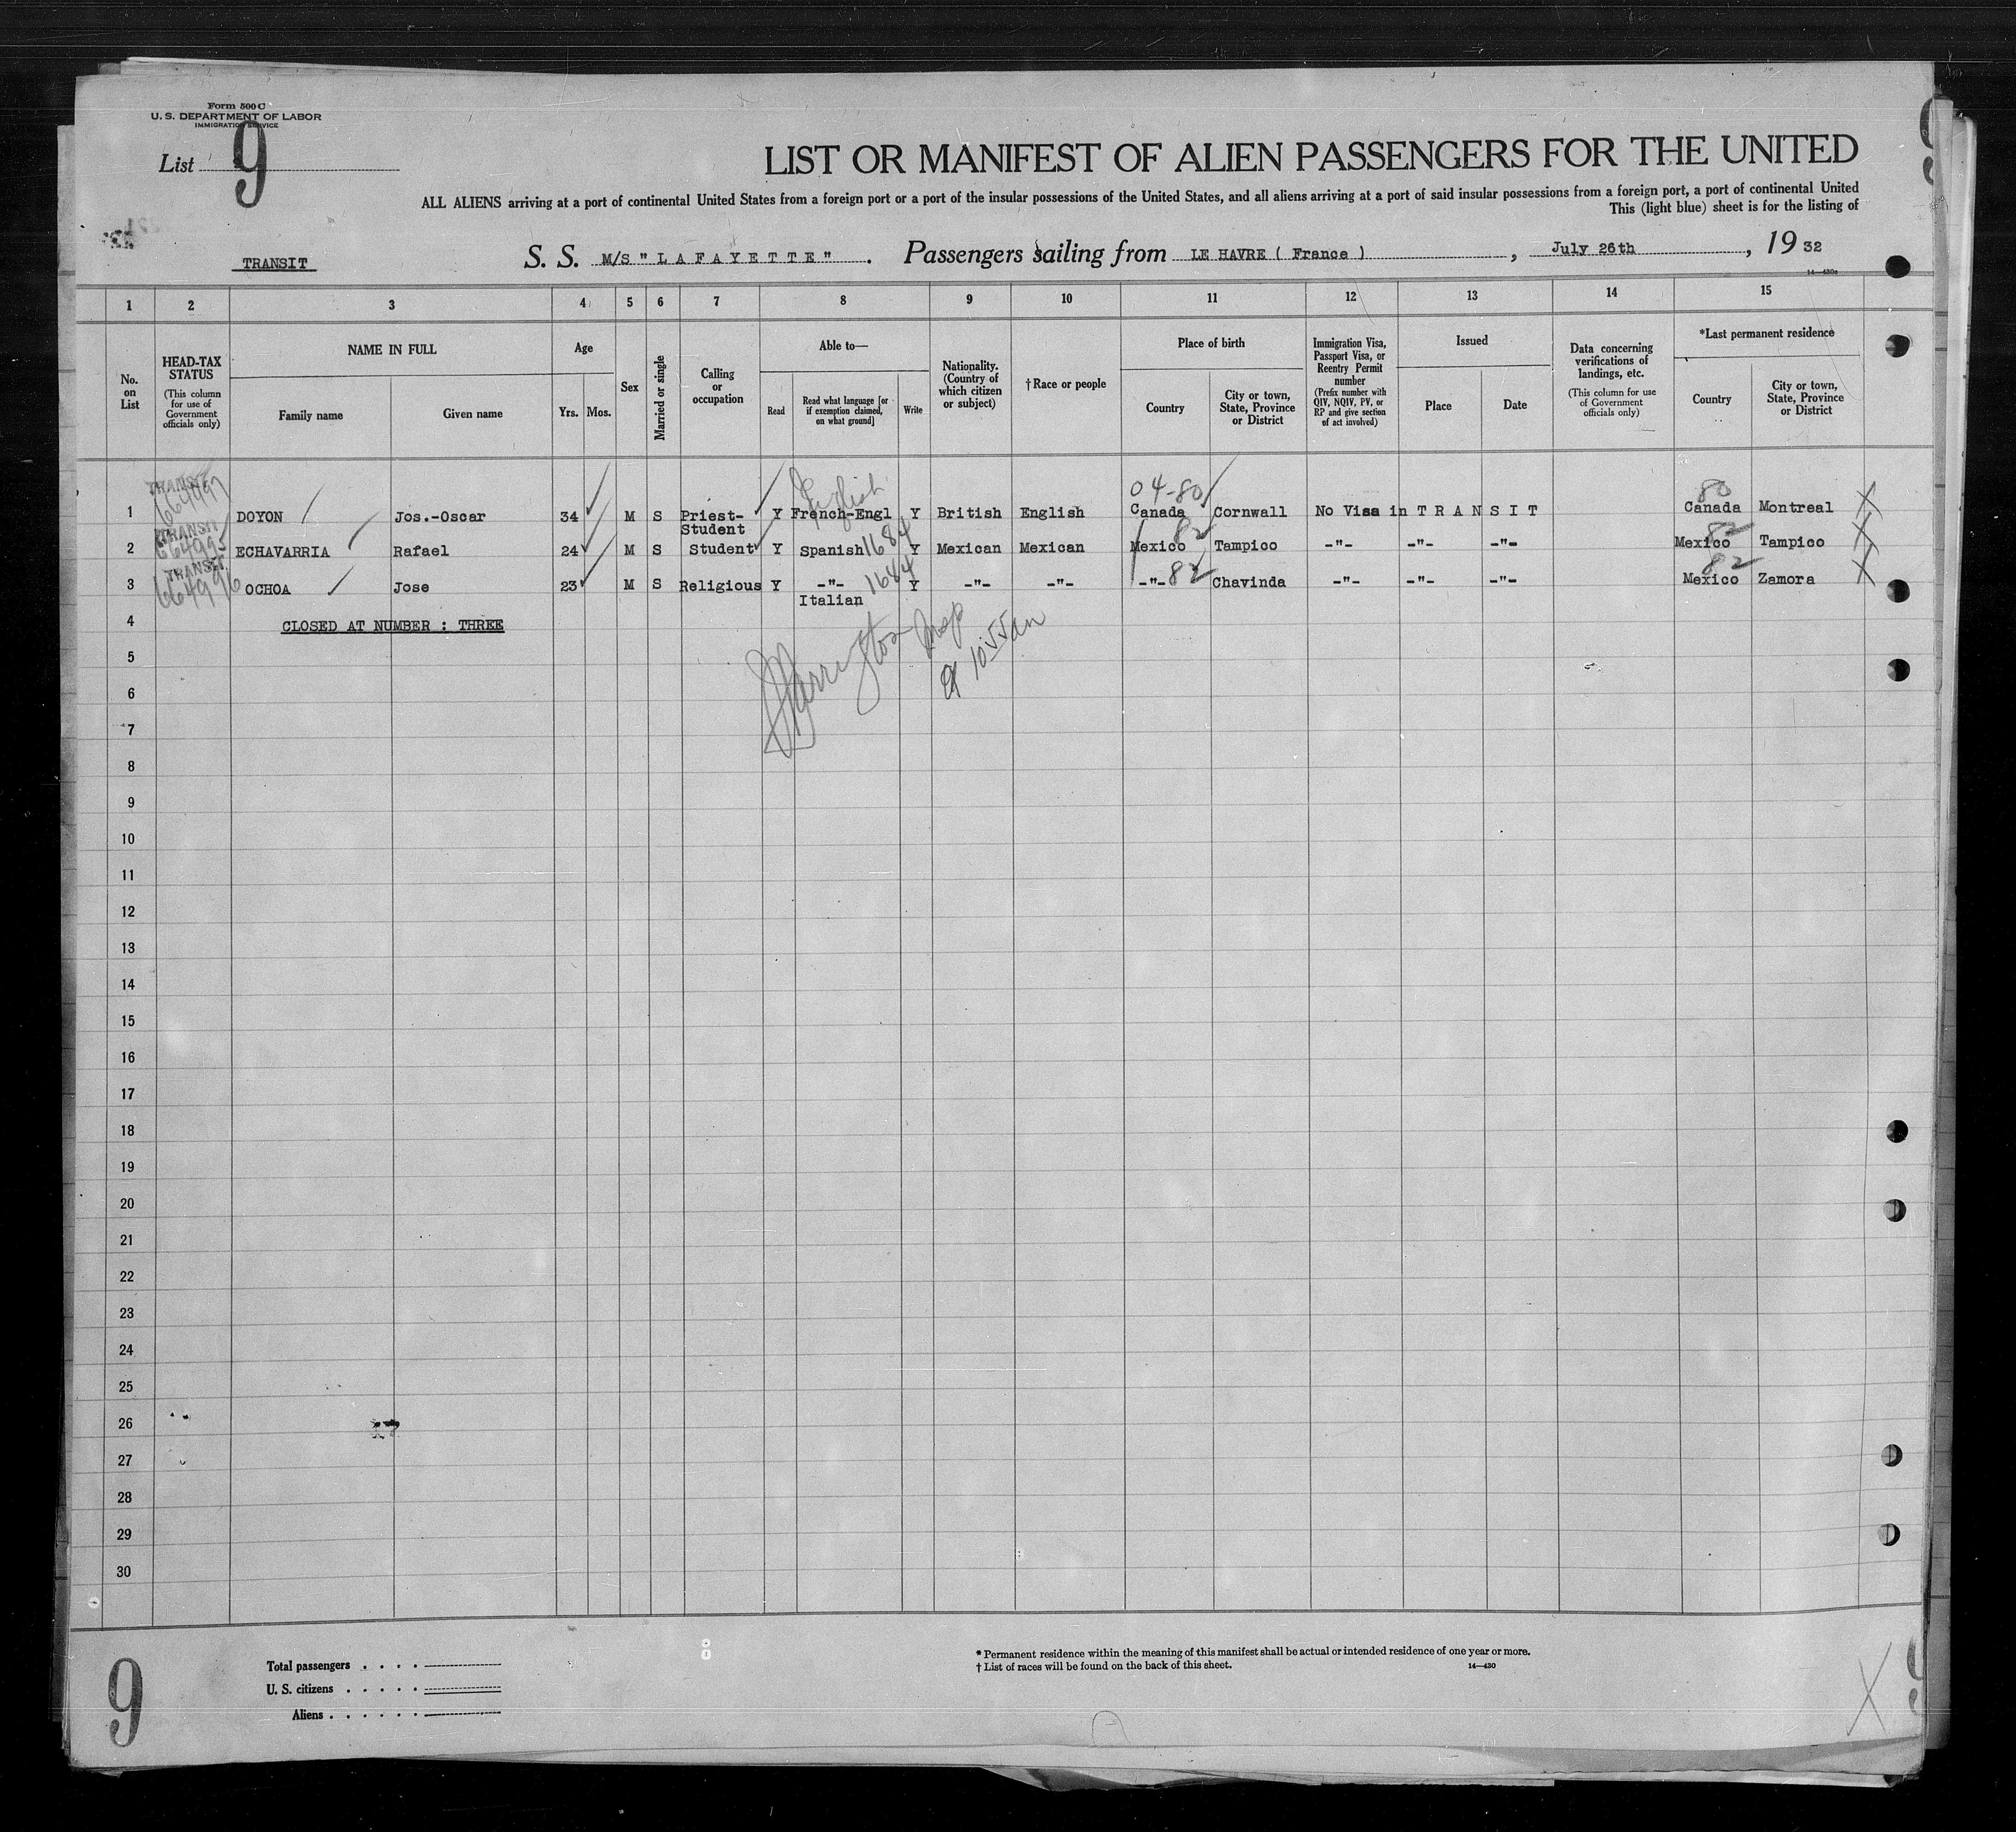 Form 500 C
U. S. DEPARTMENT OF LABOR
IMMIGRATION SERVICE
List 9
LIST OR MANIFEST OF ALIEN PASSENGERS FOR THE UNITED
ALL ALIENS arriving at a port of continental United States from a foreign port or a port of the insular possessions of the United States, and all aliens arriving at a port of said insular possessions from a foreign port, a port of continental United
This (light blue) sheet is for the listing of
TRANSIT S. S. M/S "LAFAYETTE". Passengers sailing from LE HAVRE ( France ), July 26th, 19 32
14—430a
1 2 3 4 5 6 7 8 9 10 11 12 13 14 15
No. on List
HEAD-TAX STATUS
(This column for use of Government officials only)
NAME IN FULL
Family name Given name
Age
Yrs. Mos.
Sex
Married or single
Calling or occupation
Able to—
Read
Read what language [or if exemption claimed, on what ground]
Write
Nationality. (Country of which citizen or subject)
†Race or people
Place of birth
Country
City or town, State, Province or District
Immigration Visa, Passport Visa, or Reentry Permit number
(Prefix number with QIV, NQIV, PV, or RP and give section of act involved)
Issued
Place Date
Data concerning verifications of landings, etc.
(This column for use of Government officials only)
*Last permanent residence
Country
City or town, State, Province or District
TRANSIT English 04-80 80
1 DOYON Jos.-Oscar 34 M S Priest-Student Y French-Engl Y British English Canada Cornwall No Visa in TRANSIT Canada Montreal
TRANSIT 664995 1684 82 82
2 ECHAVARRIA Rafael 24 M S Student Y Spanish Y Mexican Mexican Mexico Tampico -"- -"- -"- Mexico Tampico
TRANSIT 664996 1684 82 82
3 OCHOA Jose 23 M S Religious Y -"- Italian Y -"- -"- -"- Chavinda -"- -"- -"- Mexico Zamora
4 CLOSED AT NUMBER : THREE
5
6
7
8
9
10
11
12
13
14
15
16
17
18
19
20
21
22
23
24
25
26
27
28
29
30
9
Total passengers . . . .
U. S. citizens . . . . .
Aliens . . . . . .
* Permanent residence within the meaning of this manifest shall be actual or intended residence of one year or more.
† List of races will be found on the back of this sheet. 14—430